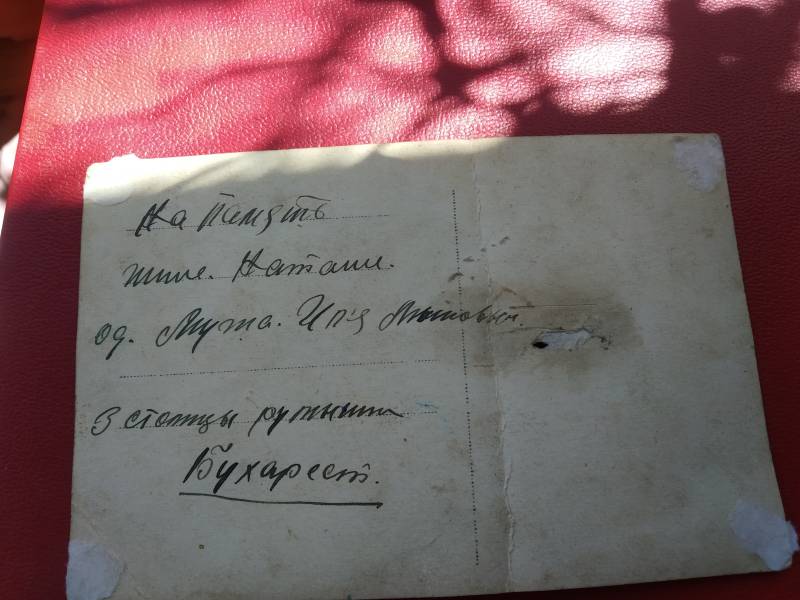 На память
жине. Наташи.
од. Мужа.
З столицы румыниї
Бухарест.